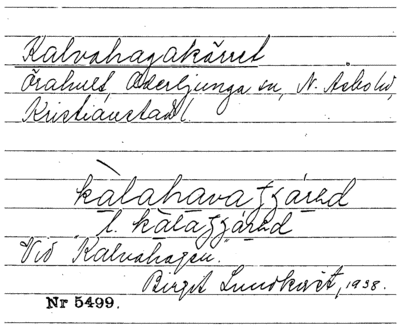 Kalvahagakärret
Örahult, Osterljunga sn, N. Åsbo hd,
Kristianstad l.
kàlahava
l. kàla
Vid "Kalvahagen".
Birgit Lundkvist, 1938.
Nr 5499.